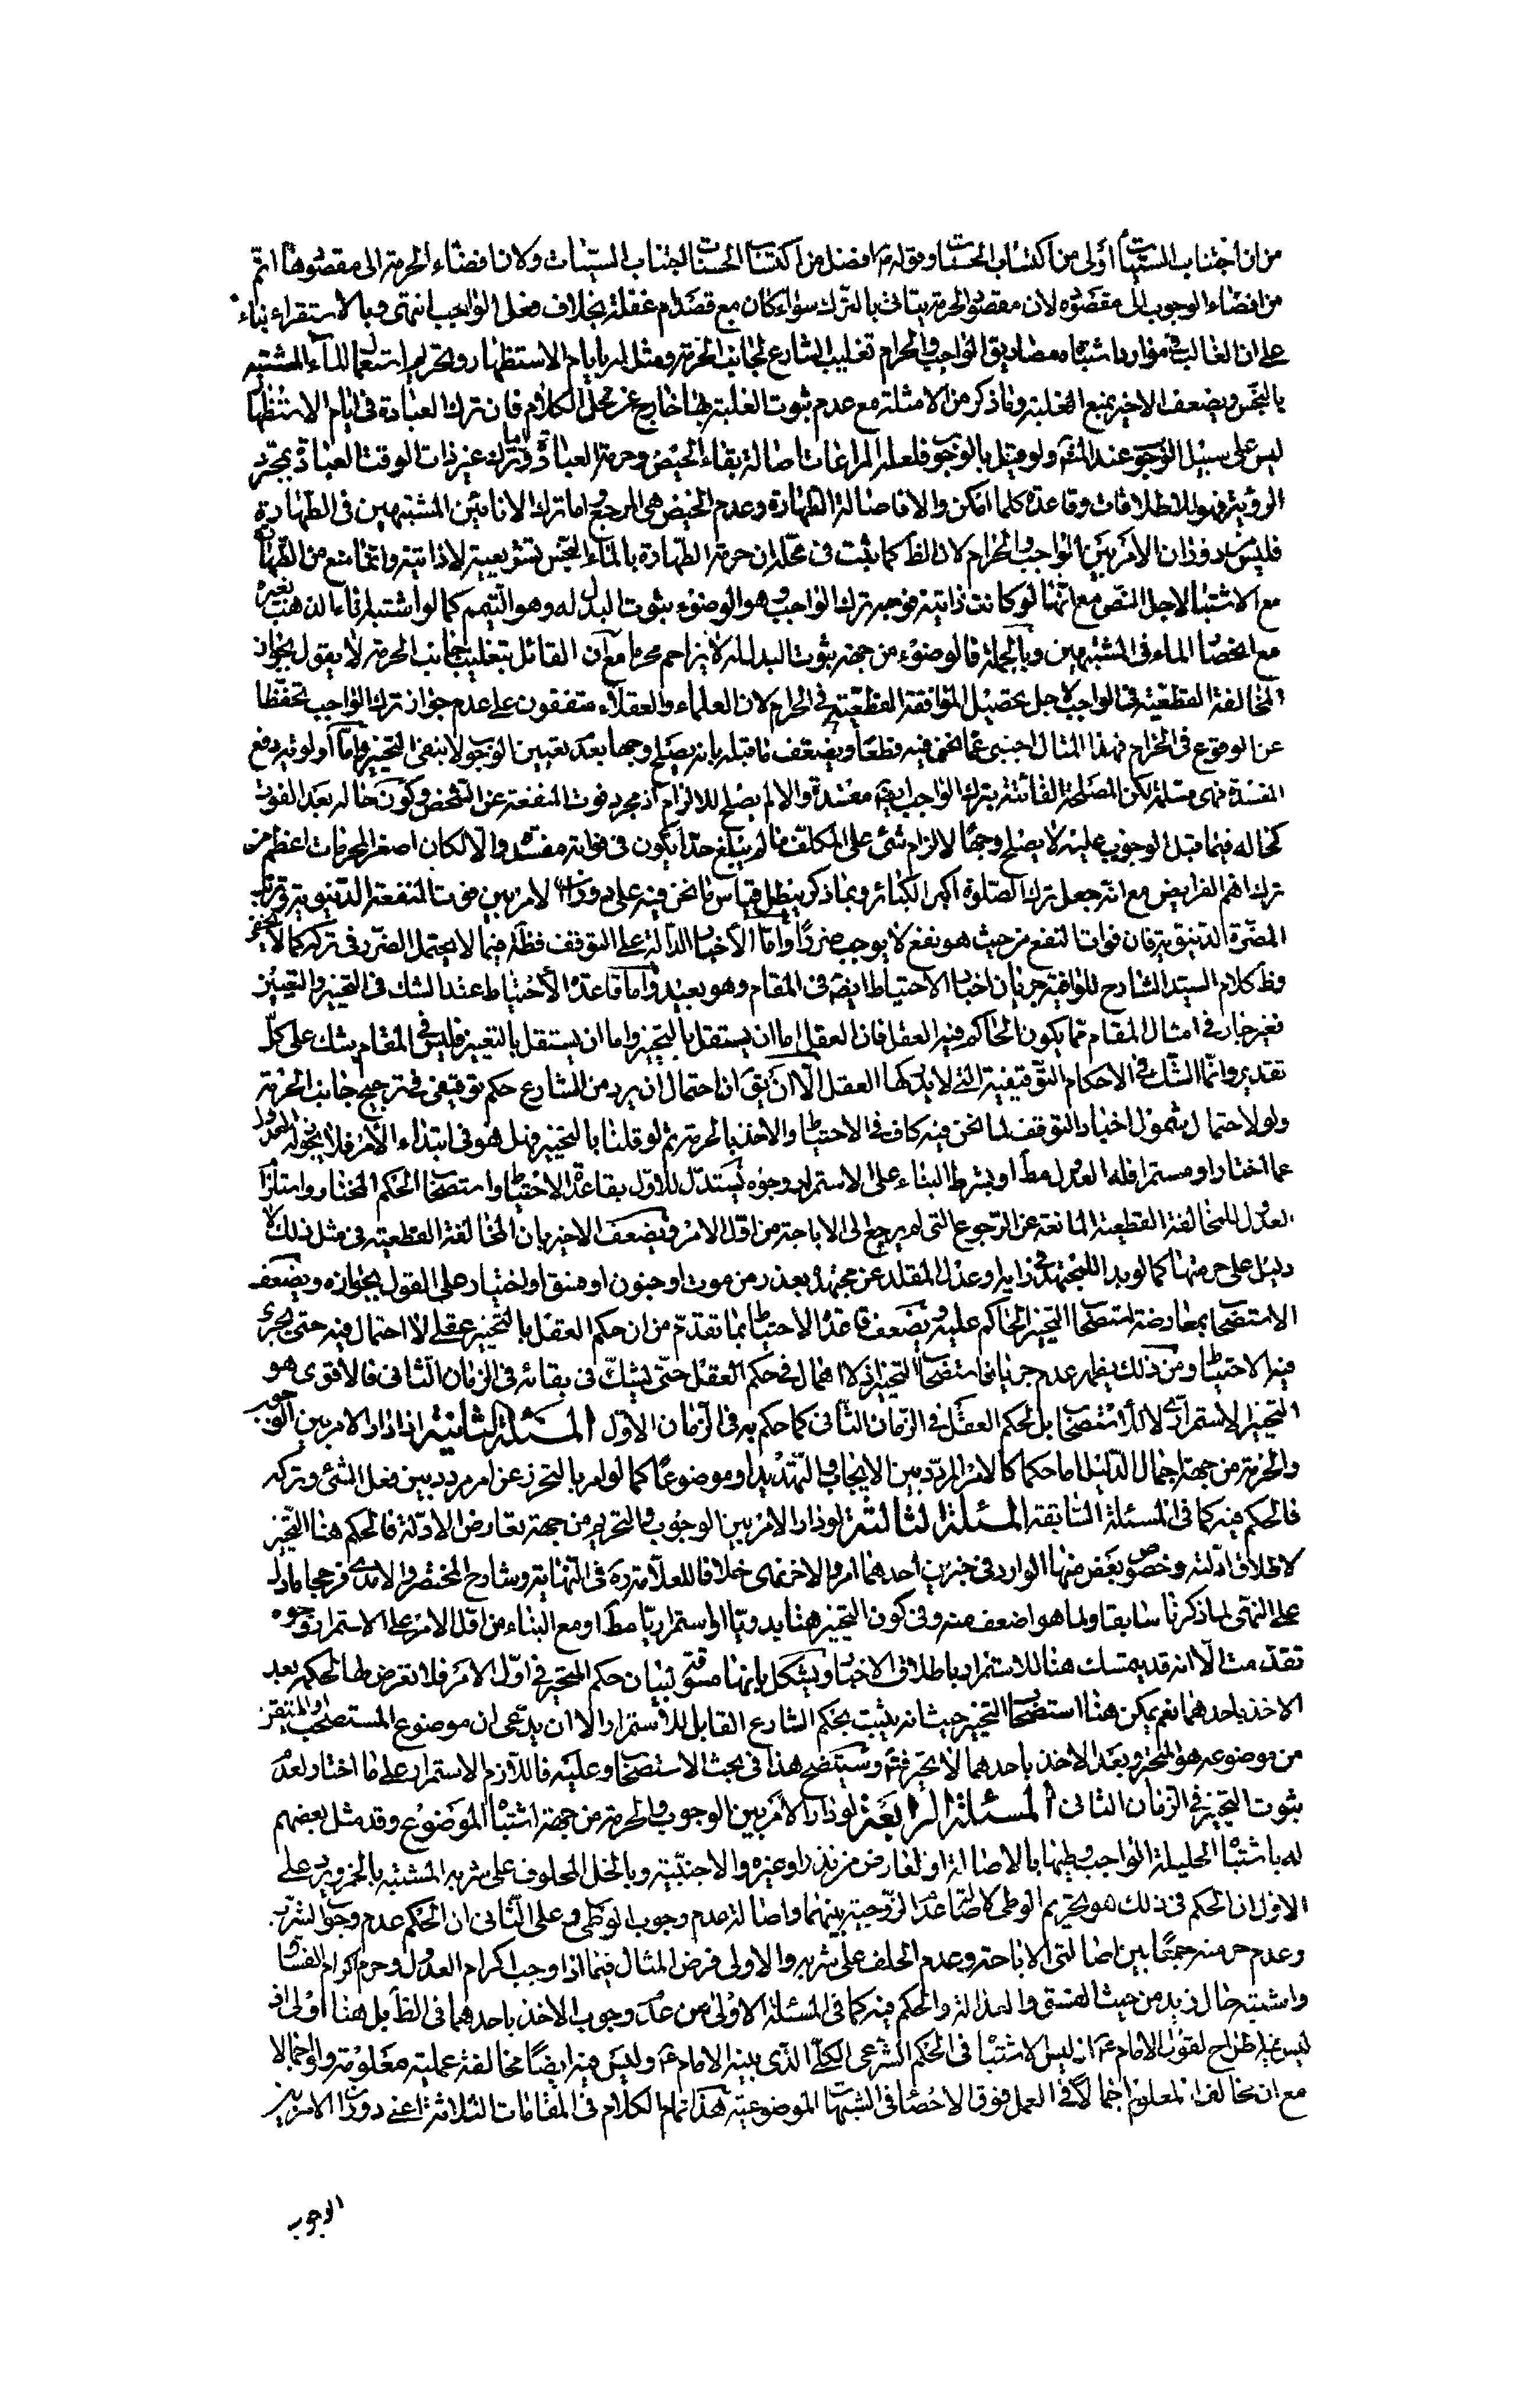 من ان اجتناب السيئات أولى من اكتساب الحسنات وقوله ع افضل من اكتساب الحسنات اجتناب السيئات ولان افضاء الحرمة الى مقصودها اتم
من افضاء الوجوب الى مقصوده لان مقصود الحرمة يتاتى بالترك سواء كان مع قصد ام غفلة بخلاف فعل الواجب انتهى وبالاستقراء بناء
على ان الغالب في موارد اشتباه مصاديق الواجب والحرام تغليب الشارع لجانب الحرمة ومثل له بايام الاستظهار وتحريم استعمال الماء المشتبه
بالنجس ويضعف الاخير بمنع الغلبة وما ذكر من الامثلة مع عدم ثبوت الغلبة بها خارج عن محل الكلام فان ترك العبادة في ايام الاستظهار
ليس على سبيل الوجوب عند المشهور ولو قيل بالوجوب فلعله لمراعات اصالة بقاء الحيض وحرمة العبادة واما ترك غير ذات الوقت العبادة بمجرد
الرؤية فهو للاطلاقات وقاعدة كلما امكن والا فاصالة الطهارة وعدم الحيض هي المرجع واما ترك الانائين المشتبهين في الطهارة
فليس من دوران الامر بين الواجب والحرام لان الظ كما ثبت في محله ان حرمة الطهارة بالماء النجس تشريعية لا ذاتية وانما منع من الطهارة
مع الاشتباه لاجل النص مع انها لو كانت ذاتية فوجه ترك الواجب وهو الوضوء ثبوت البدل له وهو التيمم كما لو اشتبه اناء الذهب بغيره
مع انحصار الماء في المشتبهين وبالجملة فالوضوء من جهة ثبوت البدل له لا يزاحم محرما مع ان القائل بتغليب جانب الحرمة لا يقول بجواز
المخالفة القطعية في الواجب لاجل تحصيل الموافقة القطعية في الحرام لان العلماء والعقلاء متفقون على عدم جواز ترك الواجب تحفظا
عن الوقوع في الحرام فهذا المثال اجنبي عما نحن فيه قطعا ويضعف ما قبله بانه يصلح وجها بعد تعيين الوجوب لا لنفي التخيير واما اولوية دفع
المفسدة فهي مسلمة لكن المصلحة الفائتة بترك الواجب ايضا مفسدة والا لم يصلح للالزام اذ مجرد فوت المنفعة عن الشخص وكون حاله بعد الفوت
كحاله فيما قبل الوجوب عليه لا يصلح وجها لالزام شئ على المكلف ما لم يبلغ حدا يكون في فواته مفسدة والا لكان اصغر المحرمات اعظم من
ترك اهم الفرايض مع انه جعل ترك الصلوة اكبر الكبائر وبما ذكر يبطل قياس ما نحن فيه على دوران الامر بين فوت المنفعة الدنيوية وترتب
المضرة الدنيوية فان فوات النفع من حيث هو نفع لا يوجب ضررا واما الأخبار الدالة على التوقف فظاهرة فيما لا يحتمل الضرر في تركه كما لا يخفى
وظ كلام السيد الشارح للوافية جريان اخبار الاحتياط ايضا في المقام وهو بعيد واما قاعدة الأحتياط عند الشك في التخيير والتعيين
فغير جار في امثال المقام مما يكون الحاكم فيه العقل فان العقل اما ان يستقل بالتخيير واما ان يستقل بالتعيين فليس في المقام شك على كل
تقدير وانما الشك في الاحكام التوقيفية التي لا يدركها العقل الا ان يق ان احتمال ان يرد من الشارع حكم توقيفي في ترجيح جانب الحرمة
ولو لاحتمال شمول اخبار التوقف لما نحن فيه كاف في الاحتياط والاخذ بالحرمة ثم لو قلنا بالتخيير فهل هو في ابتداء الأمر فلا يجوز له العدول
عما اختار او مستمر فله العدول مط او بشرط البناء على الاستمرار وجوه يستدل للاول بقاعدة الاحتياط واستصحاب الحكم المختار واستلزام
العدول للمخالفة القطعية المانعة عن الرجوع التي لم يرجع الى الاباحة من اول الامر ويضعف الاخير بان المخالفة القطعية في مثل ذلك لا
دليل على حرمتها كما لو بدا للمجتهد في رايه او عدل المقلد عن مجتهده بعذر من موت او جنون او فسق او اختيار على القول بجوازه ويضعف
الاستصحاب بمعارضة استصحاب التخيير الحاكم عليه ويضعف قاعدة الاحتياط بما تقدم من ان حكم العقل بالتخيير عقلي لا احتمال فيه حتى يجرى
فيه الاحتياط ومن ذلك يظهر عدم جريان استصحاب التخيير اذ لا اهمال في حكم العقل حتى يشك في بقائه في الزمان الثاني فالأقوى هو
التخيير الاستمراري لا للاستصحاب بل لحكم العقل في الزمان الثاني كما حكم به في الزمان الاول المسئلة الثانية اذا دار الامر بين الوجوب
والحرمة من جهة اجمال الدليل اما حكما كالامر المردد بين الايجاب والتهديد او موضوعا كما لو امر بالتحرز عن امر مردد بين فعل الشئ وتركه
فالحكم فيه كما في المسئلة السابقة المسئلة الثالثة لو دار الامر بين الوجوب والتحريم من جهة تعارض الادلة فالحكم هنا التخيير
لاطلاق ادلته وخصوص بعض منها الوارد في خبرين احدهما امر والاخر نهى خلافا للعلامة ره في النهاية وشارح المختصر والامدي فرجحا ما دل
على النهى لما ذكرنا سابقا ولما هو اضعف منه وفي كون التخيير هنا بدويا او استمراريا مط او مع البناء من اول الامر على الاستمرار وجوه
تقدمت الا انه قد يتمسك هنا للاستمرار باطلاق الاخبار ويشكل بانها مسوقة لبيان حكم المتحير في اول الامر فلا تعرض لها لحكمه بعد
الاخذ باحدهما نعم يمكن هنا استصحاب التخيير حيث انه يثبت بحكم الشارع القابل للاستمرار الا ان يدعى ان موضوع المستصحب او المتيقن
من موضوعه هو المتحير وبعد الاخذ باحدهما لا تحير فتأمل وسيتضح هذا في بحث الاستصحاب وعليه فاللازم الاستمرار على ما اختار لعدم
ثبوت التخيير في الزمان الثاني المسئلة الرابعة لو دار الأمر بين الوجوب والحرمة من جهة اشتباه الموضوع وقد مثل بعضهم
له باشتباه الحليلة الواجب وطيها بالاصالة او لعارض من نذر او غيره والاجنبية وبالخل المحلوف على شربه المشتبه بالخمر ويرد على
الاول ان الحكم في ذلك هو تحريم الوطى لاصالة عدم الزوجية بينهما واصالة عدم وجوب الوطى وعلى الثاني ان الحكم عدم وجوب الشرب
وعدم حرمته جمعا بين اصالتي الاباحة وعدم الحلف على شربه والاولى فرض المثال فيما اذا وجب اكرام العدول وحرم اكرام الفساق
واشتبه حال زيد من حيث الفسق والعدالة والحكم فيه كما في المسئلة الاولى من عدم وجوب الاخذ باحدهما في الظ بل هنا أولى اذ
ليس فيه اطراح لقول الامام ع اذ ليس الاشتباه في الحكم الشرعي الكلي الذي بينه الامام ع وليس فيه ايضا مخالفة عملية معلومة ولو اجمالا
مع ان مخالفة المعلوم اجمالا في العمل فوق الاحصاء في الشبهات الموضوعية هذا تمام الكلام في المقامات الثلاثة اعني دوران الامر بين
الوجوب